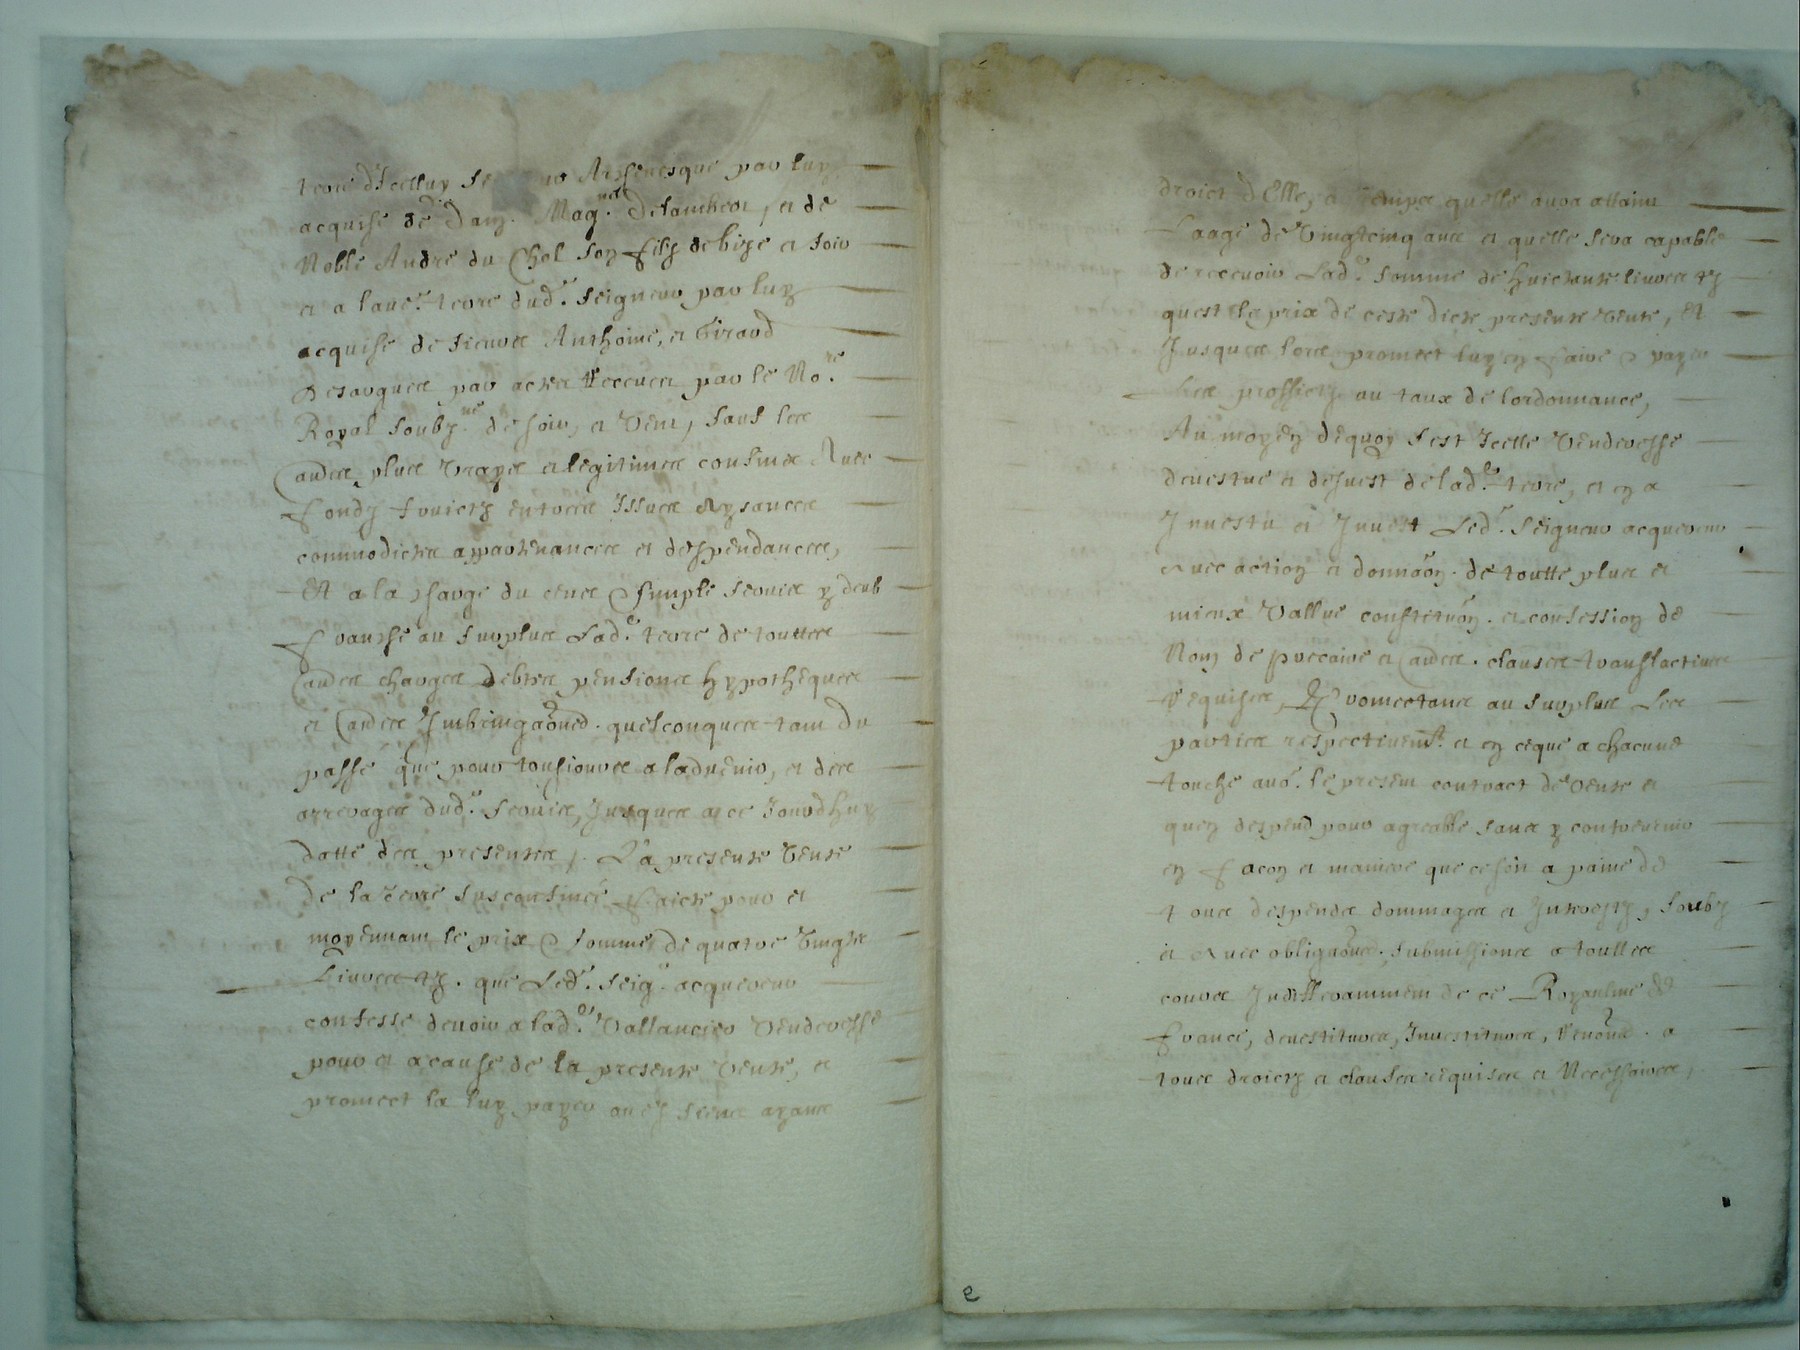 terre d'Icelluy Se ur Archevesque par luy
acquise de Dam. Mag. Delaucheoz, et de
Noble André du Chol son filz de bize et soir
et a lave. terre dud. Seigneur par luy
acquise de sieurs Anthoine, et Giraud
Desargues par actes Receus par le No.re
Royal soubz.né de soir, et vent, sauf les
autres plus vrayes et legitimes confins Avec
fondz fruictz entrees Issues Aysances
commodictes appartenances et despendances,
Et a la charge du cens & simple servis y deub
franche au surplus Lad.e terre de touttes
autres charges debtes pensions hypotheques
et autres Imbringaōns. quelconques tant du
passé que pour tousiours a ladvenir, et des
arrerages dud. servis, Jusques a ce Jourdhuy
datte des presentes, La presente vente
de la terre susconfinée faicte pour et
moyennant le prix & somme de quatre vingtz
Livres tz. que Led. Seig. acquereur
confesse devoir a lad.e Vallancier venderesse
pour et a cause de la presente vente, et
promect la luy payer ou es siens ayans
droict d'Elle, a temps quelle aura attaint
Laage de vingtcinq ans et quelle sera capable
de recevoir Lad.e somme de huictante livres tz
quest le prix de ceste dicte presente vente, Et
Jusques lors promect luy en faire & payer
Les proffictz au taux de lordonnance,
Au moyen dequoy sest Icelle venderesse
devestue et desvest de lad.e terre, et en a
Investu et Invest Led. Seigneur acquereur
Avec action et donnaōn. de toutte plus et
mieux vallue constitūon. et confession de
Nom de precaire et autres. clauses translatives
Requises, Promectans au surplus Les
parties respectivemt. et en ceque a chacune
touche avo. le present contract de vente et
quen despend pour agreable sans y contrevenir
en facon et maniere que ce soit a paine de
tous despens dommages et Interestz, soubz
et Avec obligaōns. submissions a touttes
cours Indifferamment de ce Royaulme de
france, devestitures, Investitures, Renōns. a
tous droictz et clauses requises et Necessaires,
e